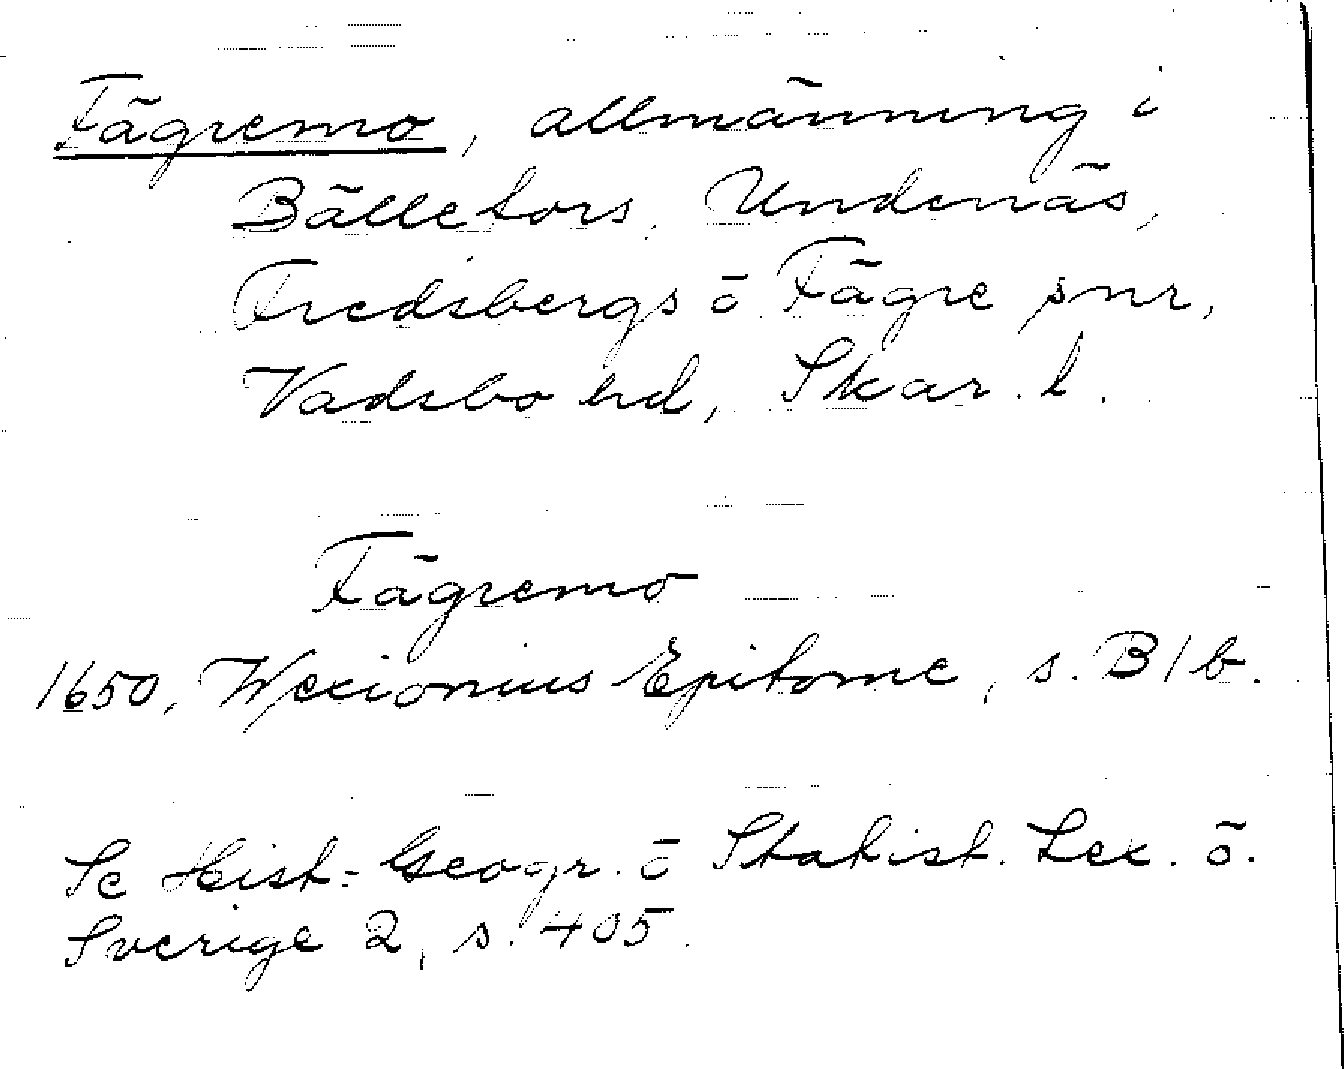 Fägremo, allmänning i
Bällefors, Undenäs,
Fredsbergs o Fägre snr,
Vadsbo hd, Skar. l.
Fägremo
1650, Wexionius Epitome, s. B1b.
Se Hist.-Geogr. o Statist. Lex. ö.
Sverige 2, s. 405.